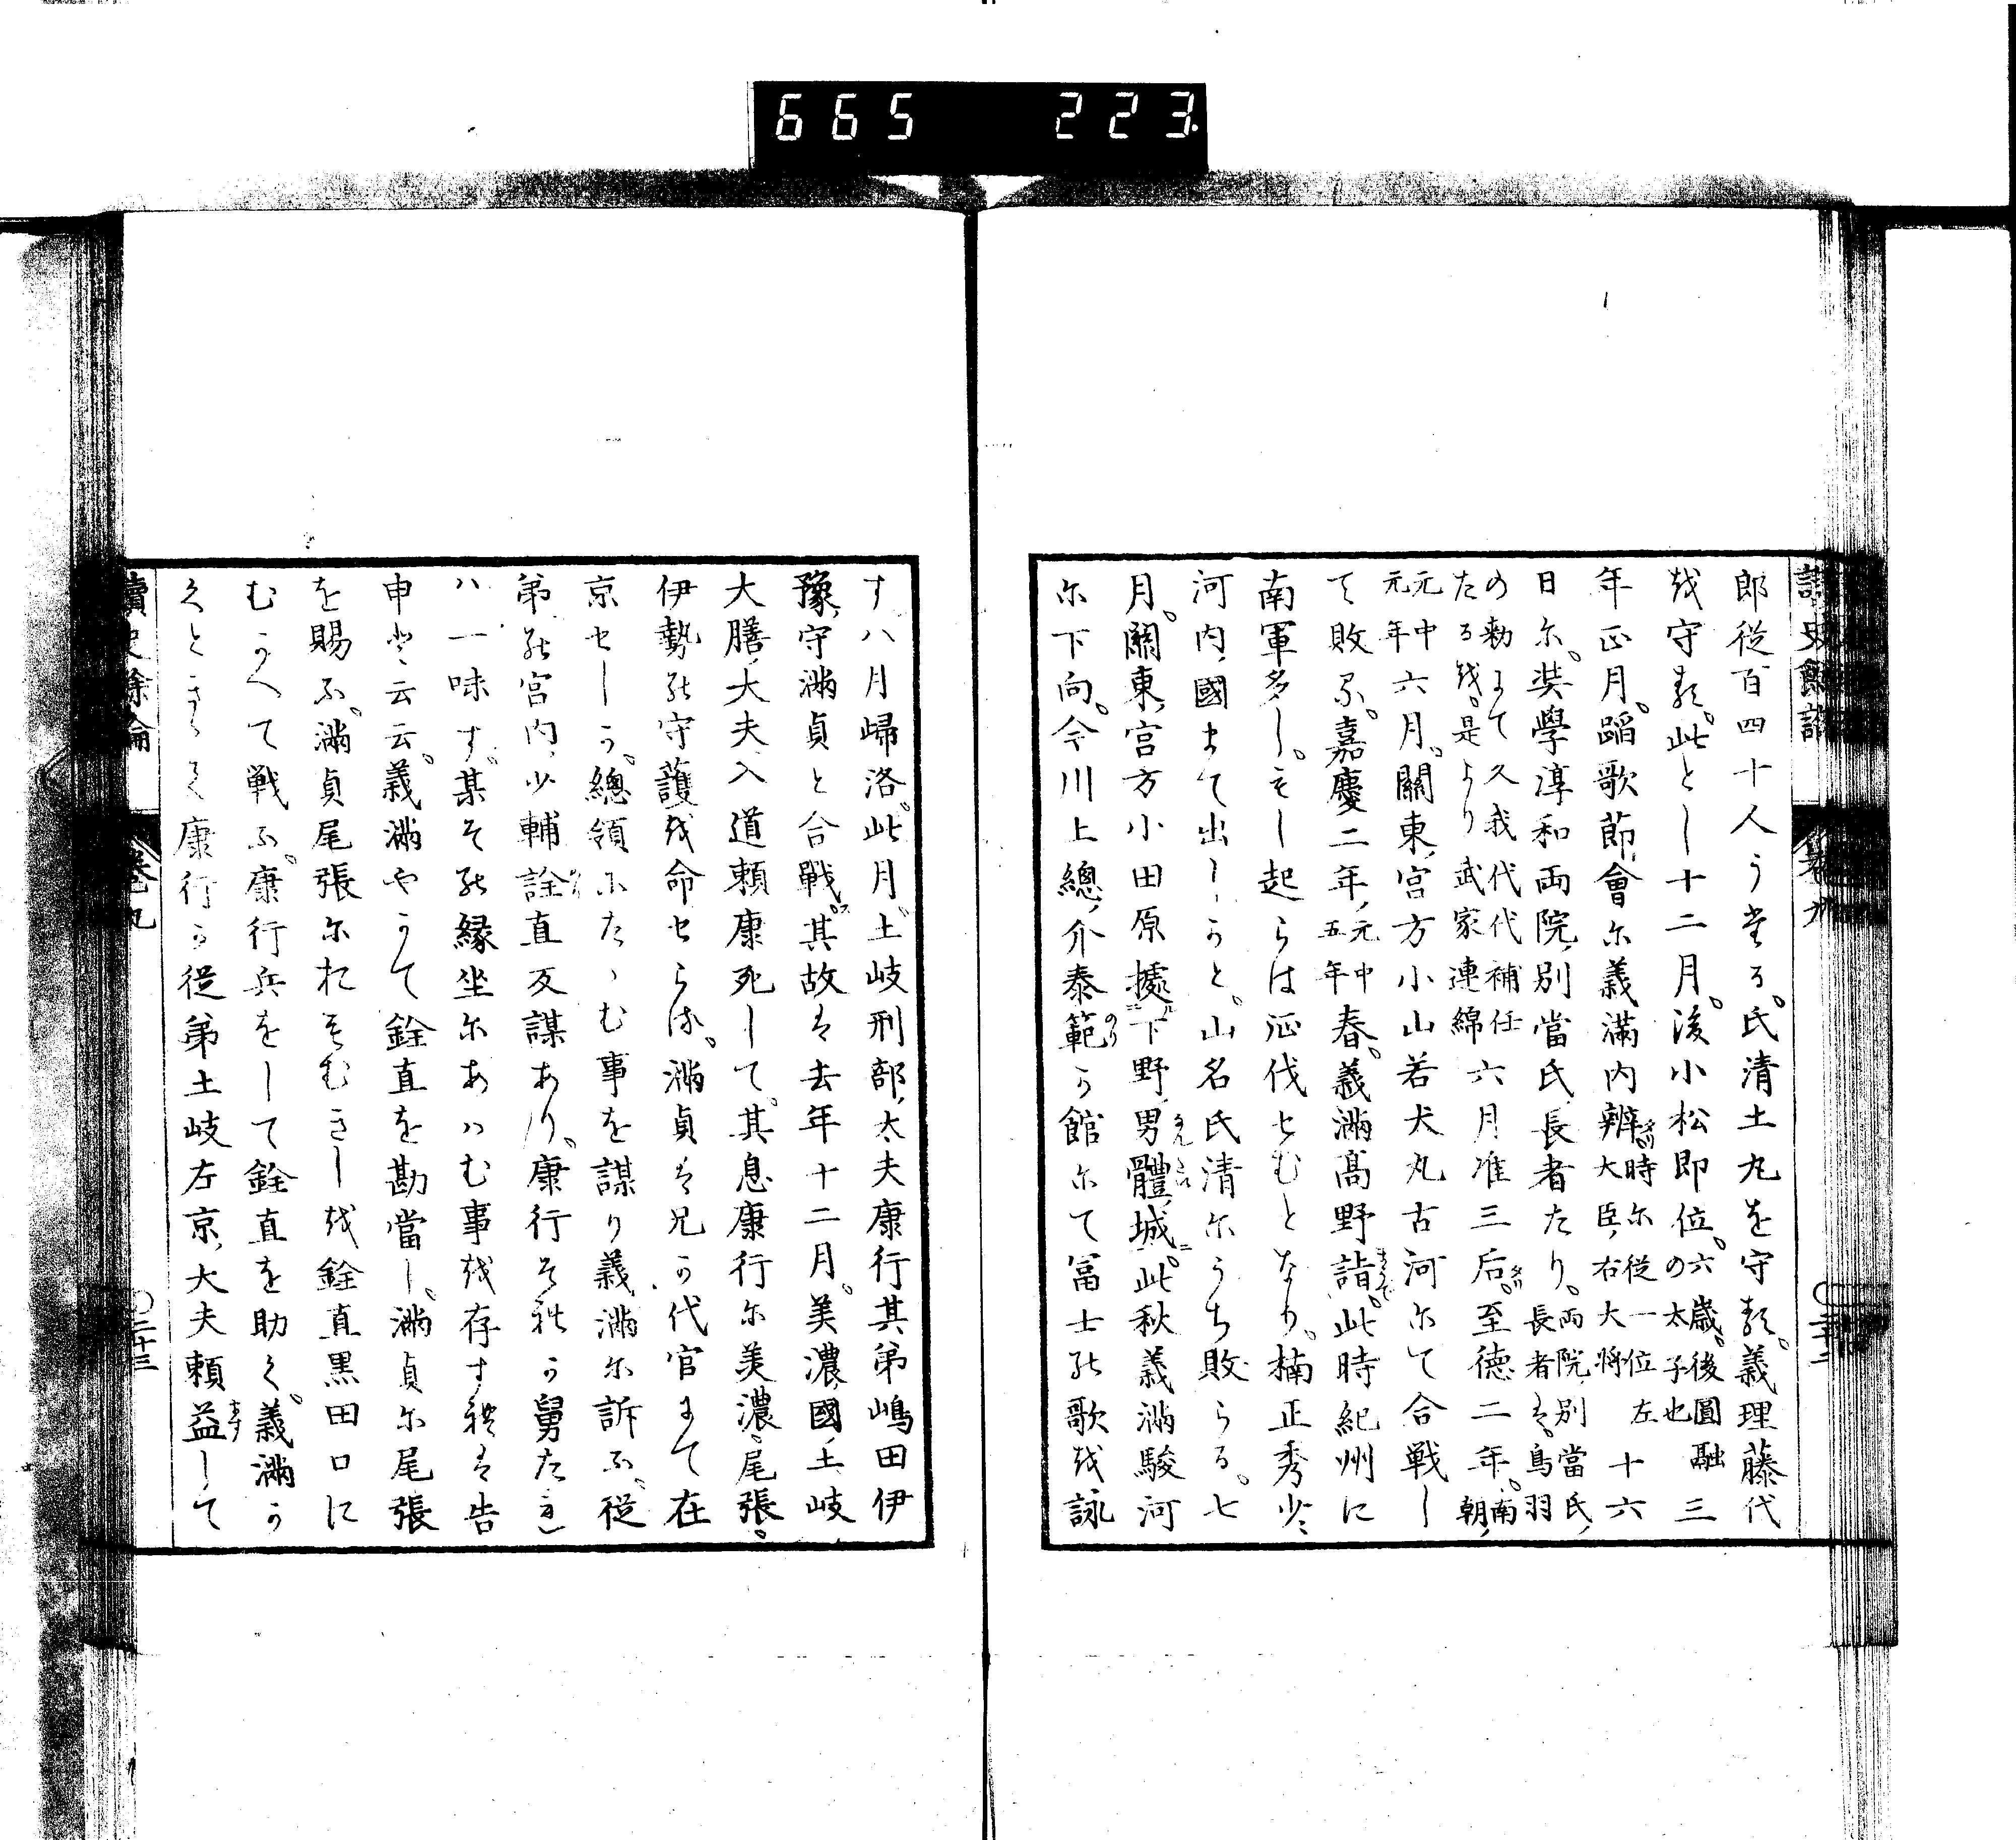 665 223
讀史餘論 卷九
郎從百四十人うたる。氏清土丸を守る。義理藤代
越守る。此とし十二月。後小松即位。六歳。後圓融の太子也 三
年正月。蹈歌節會尓義滿内辨。時尓從一位左大臣、右大将 十六
日尓。奨學淳和両院別當氏長者たり。両院別當氏、長者は、鳥羽
の勅まて久我代代補任たる越。是より武家連綿 六月准三后。至徳二年。南朝、
元中元年 六月。關東宮方小山若犬丸古河尓て合戦し
て敗る。嘉慶二年、元中五年 春。義滿髙野詣。此時紀州に
南軍多し。もし起らは征伐せむとなり。楠正秀少〻
河内國まて出しかと。山名氏清尓うち敗らる。七
月。關東宮方小田原據下野男體城。此秋義滿駿河
尓下向。今川上總介泰範か館尓て冨士能歌越詠
す八月歸洛。此月。土岐刑部太夫康行其弟嶋田伊
豫守滿貞と合戰。其故は去年十二月。美濃國土岐
大膳大夫入道頼康死して。其息康行尓美濃尾張。
伊勢能守護越命せらる。滿貞は兄か代官まて在
京せしか。總領尓たゝむ事を謀り義滿尓訴ふ。從
弟能宮内少輔詮直反謀あり。康行それか舅たれ
ハ一味す。某そ能縁坐尓あハむ事越存す禮は告
申と云云。義滿やかて銓直を勘當し。滿貞尓尾張
を賜ふ。滿貞尾張尓おもむきし越銓直黒田口に
むかへて戦ふ。康行兵をして銓直を助く。義滿か
くときゝて康行か從弟土岐左京大夫頼益して
讀史餘論 卷九 〇二十三